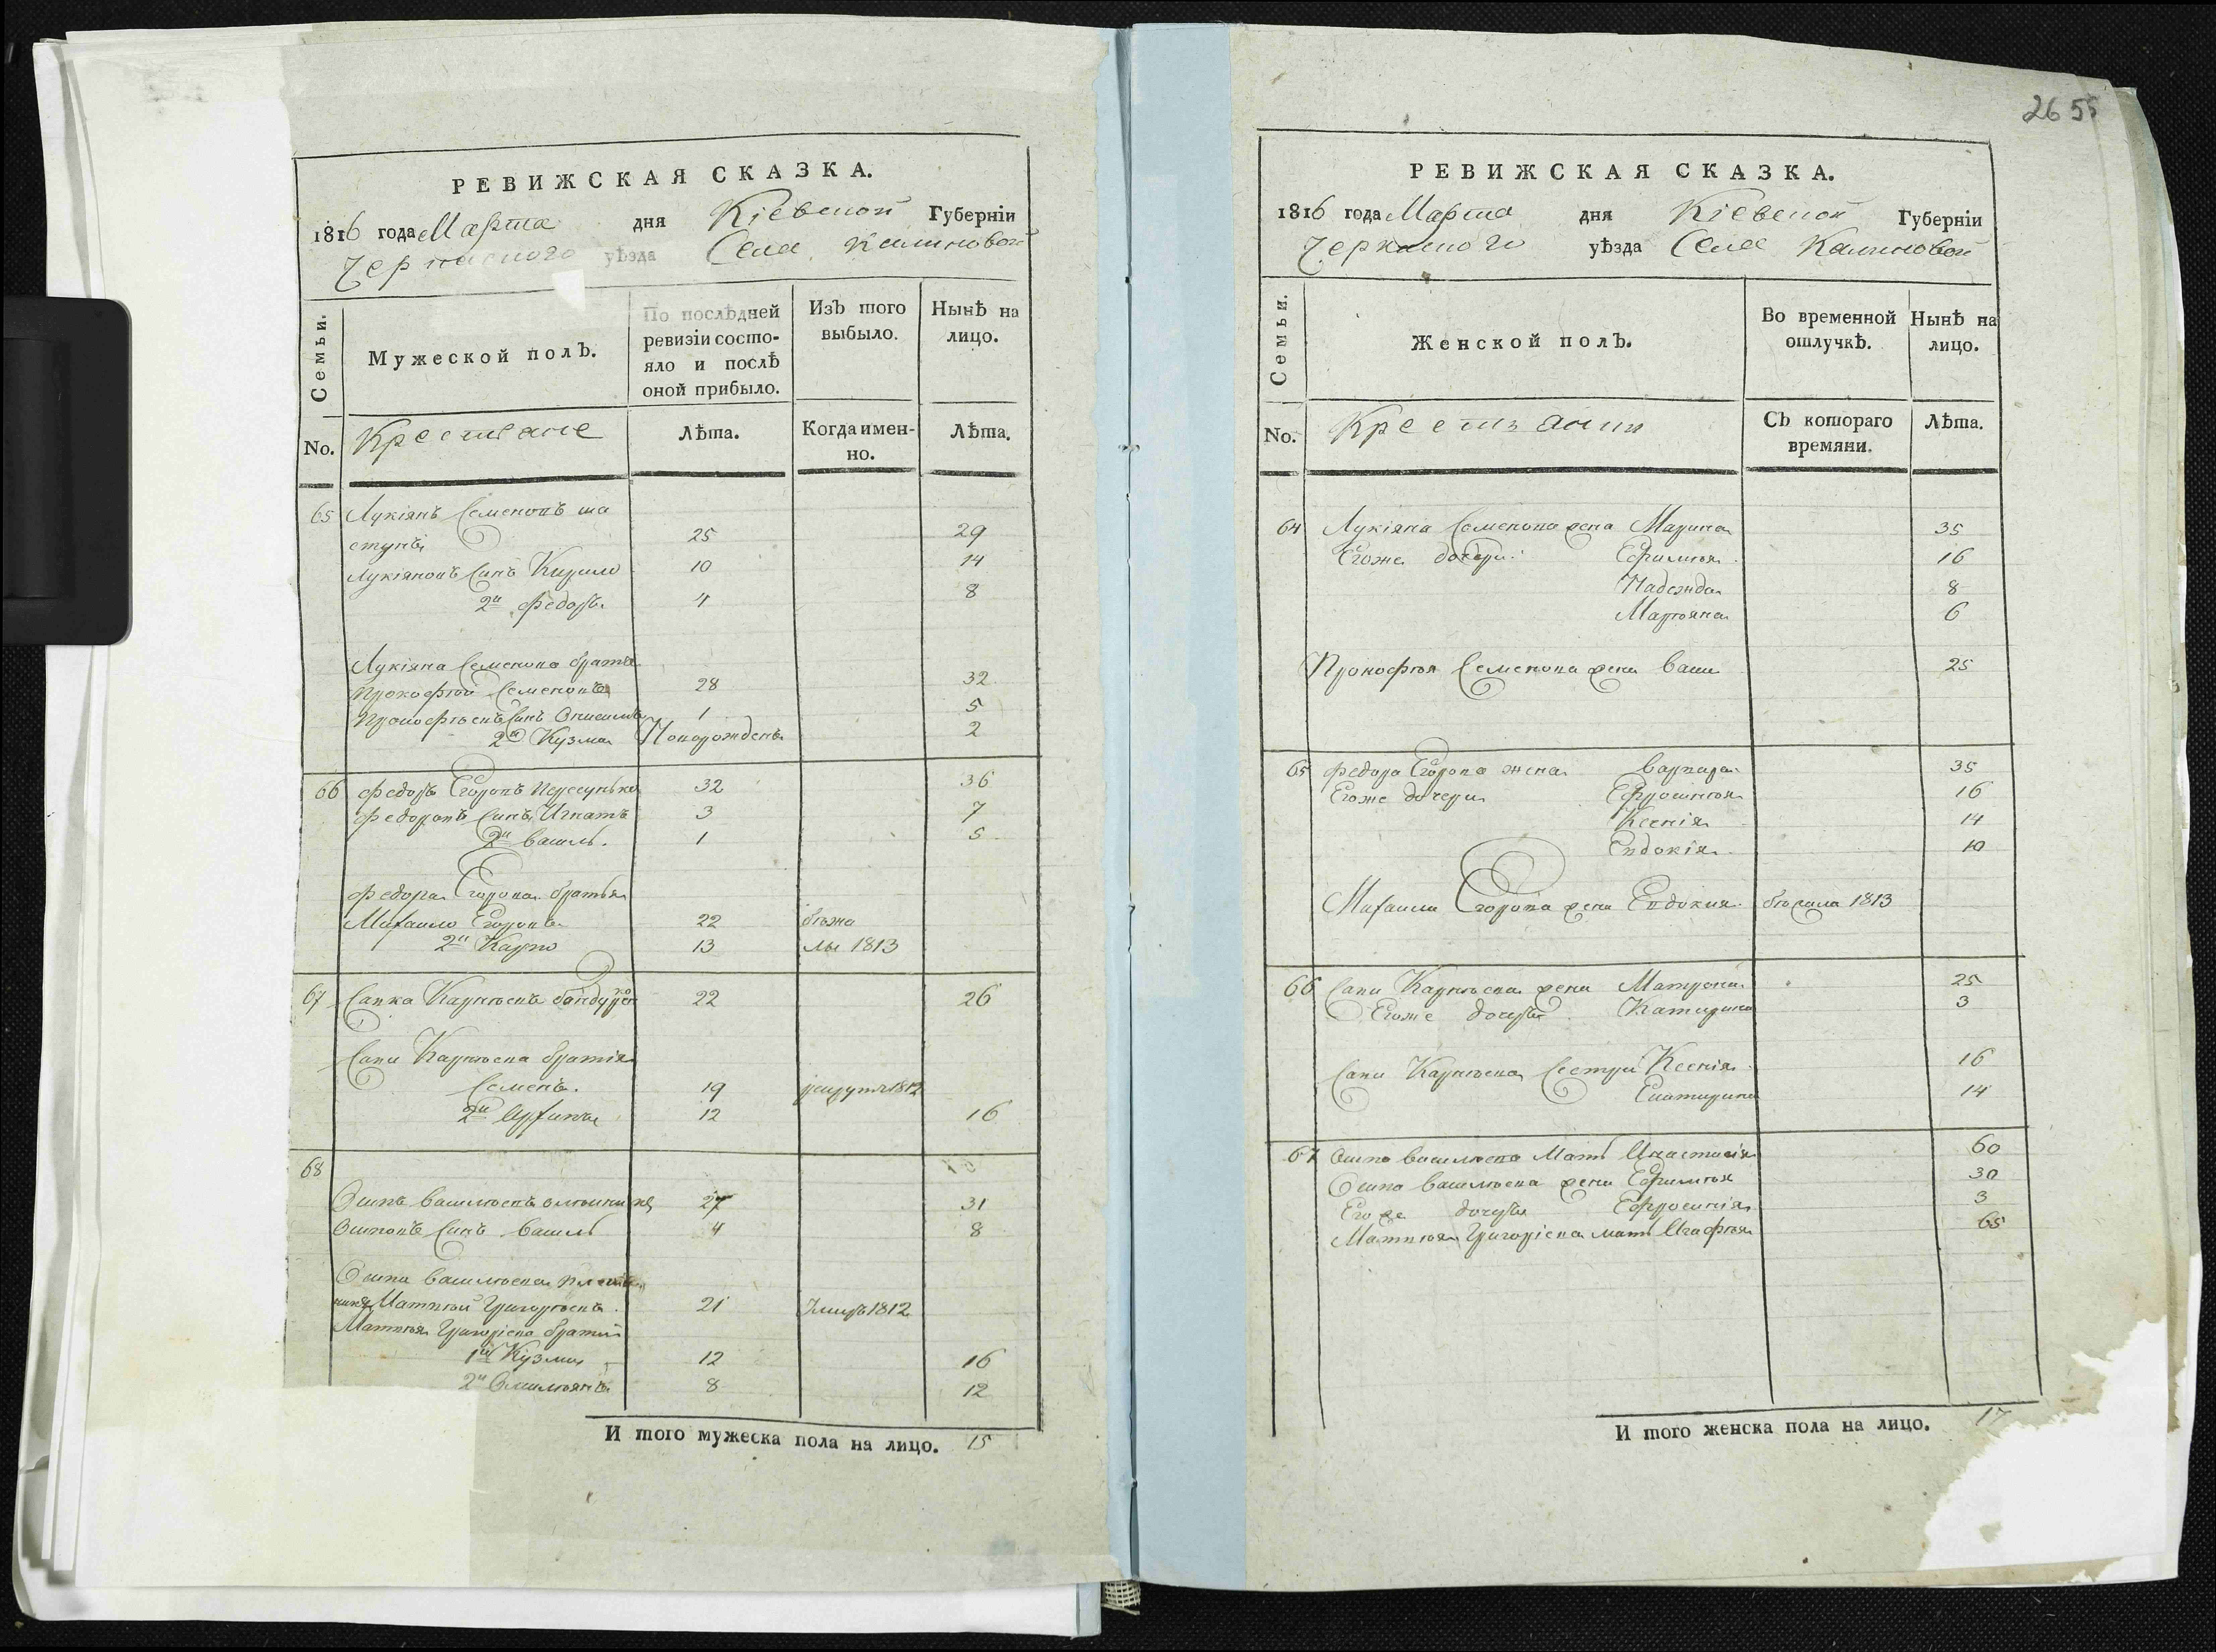 2655
РЕВИЖСКАЯ СКАЗКА.
1816 года Марта дня Кіевской Губерніи
Черкаского уѣзда Села Калиновой
Семьи.
Мужеской полЪ.
По послѣдней ревизіи состо-
яло и послѣ
оной прибыло.
ИзЪ того
выбыло.
НынѢ на
лицо.
No.
Крестяне
Лѣта.
Когда имен-
но.
Лѣта.
65 Лукіянъ Семеновъ ша
стунъ 25 29
Лукіяновъ Синъ Кирило 10 14
2й Федоръ 4 8
Лукіяна Семенова братья
Прокофій Семеновъ 28 32
Прокофіевъ Синъ Онисимъ 1 5
2й Кузма Новорожденъ 2
66 Федоръ Егоровъ 32 36
Федоровъ Синъ Игнатъ 3 7
2й Василь. 1 5
Федора Егорова братья
Михайло Егоровъ 22 бѣжа
2й Карпо 13 лы 1813
67 Савка Карпіевъ 22 26
Савки Карпіева братія
Семенъ. 19 рекрутъ 1812
2й 12 16
68
Осипъ Васильевъ 27 31
Осиповъ Синъ Василь 4 8
Осипа Васильева племян
никъ Матвій Григорьевъ 21 Умеръ 1812
Матвія Григоріева братья
1й Кузма 12 16
2й Омильянъ 8 12
И того мужеска пола на лицо. 15
РЕВИЖСКАЯ СКАЗКА.
1816 года Марта дня Кіевской Губерніи
Черкаского уѣзда Села Калиновой
Семьи.
Женской полЪ.
Во временной
отлучкѢ.
НынѢ на
лицо.
No.
Крестянки
СЪ котораго
времяни.
Лѣта.
64 Лукіяна Семенова жена Марина 35
Егоже дочери: Ефимія 16
Надежда 8
Маріяна 6
Прокофія Семенова жена 25
65 Федора Егорова жена Варвара 35
Егоже дочери Ефросинія 16
Ксенія 14
Евдокія 10
Михаила Егорова жена Евдокия бѣжала 1813
66 Савки Карпіева жена Матрона 25
Егоже дочерь Катирина 3
Савки Карпіева Сестри Ксенія 16
Екатирина 14
67 Осипа Васильева Мать Анастасія 60
Осипа Васильева жена Ефимія 30
Егоже дочерь Ефросинія 3
Матвія Григоріева мать Агафія 65
И того женска пола на лицо. 17